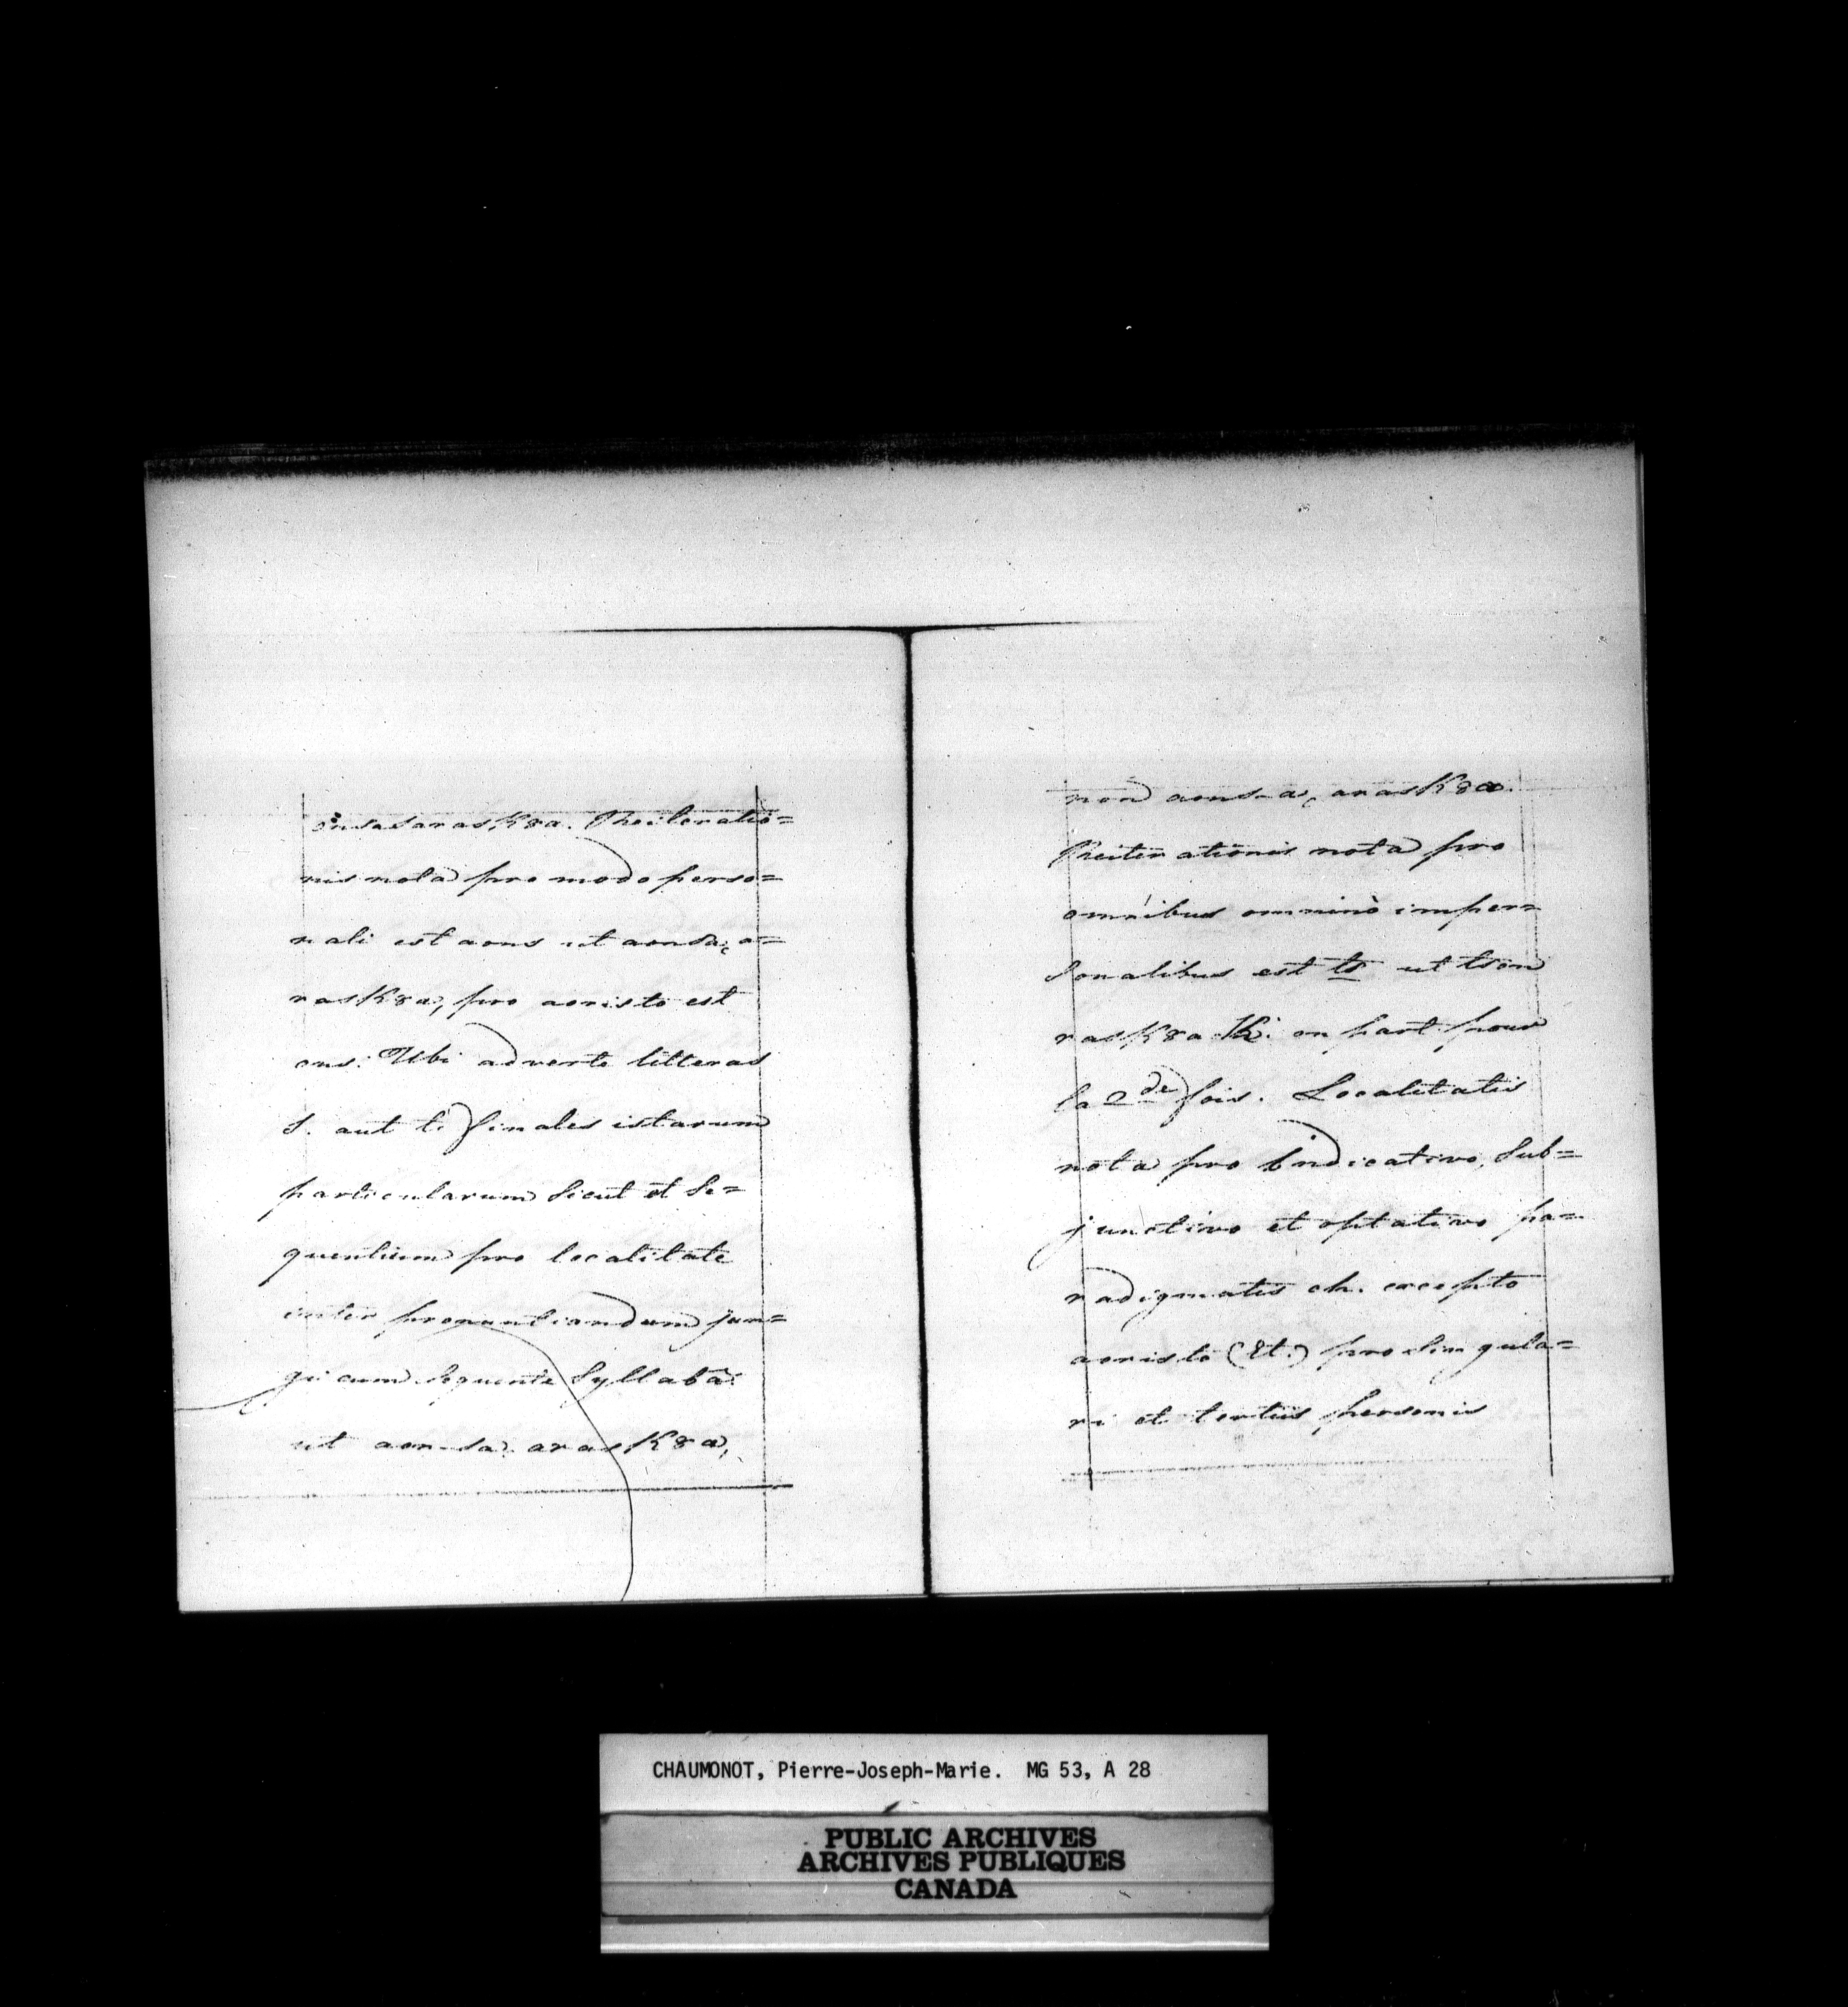 onsasaraskȣa. Reiteratio=
nis nota pro modo perso=
nali est aons ut aonsa, a=
raskȣa, pro aoristo est
ons. Ubi adverte litteras
S. aut t. finales istarum
particularum sicut et se=
quentium pro localitate
inter pronuntiandum jun=
gi cum sequente syllabâ.
ut aon-sa araskȣa,
non aons-a, araskȣa.
Reiterationis nota pro
omnibus omninò imper=
sonalibus est ts ut tson
raskȣa . on part pour
la 2de fois. Localitatis
nota pro indicativo, sub=
junctivo et optativo pa=
radigmatis ch. excepto
aoristo (et.) pro singula=
ri et tertiis personis
CHAUMONOT, Pierre-Joseph-Marie. MG 53, A 28
PUBLIC ARCHIVES
ARCHIVES PUBLIQUES
CANADA